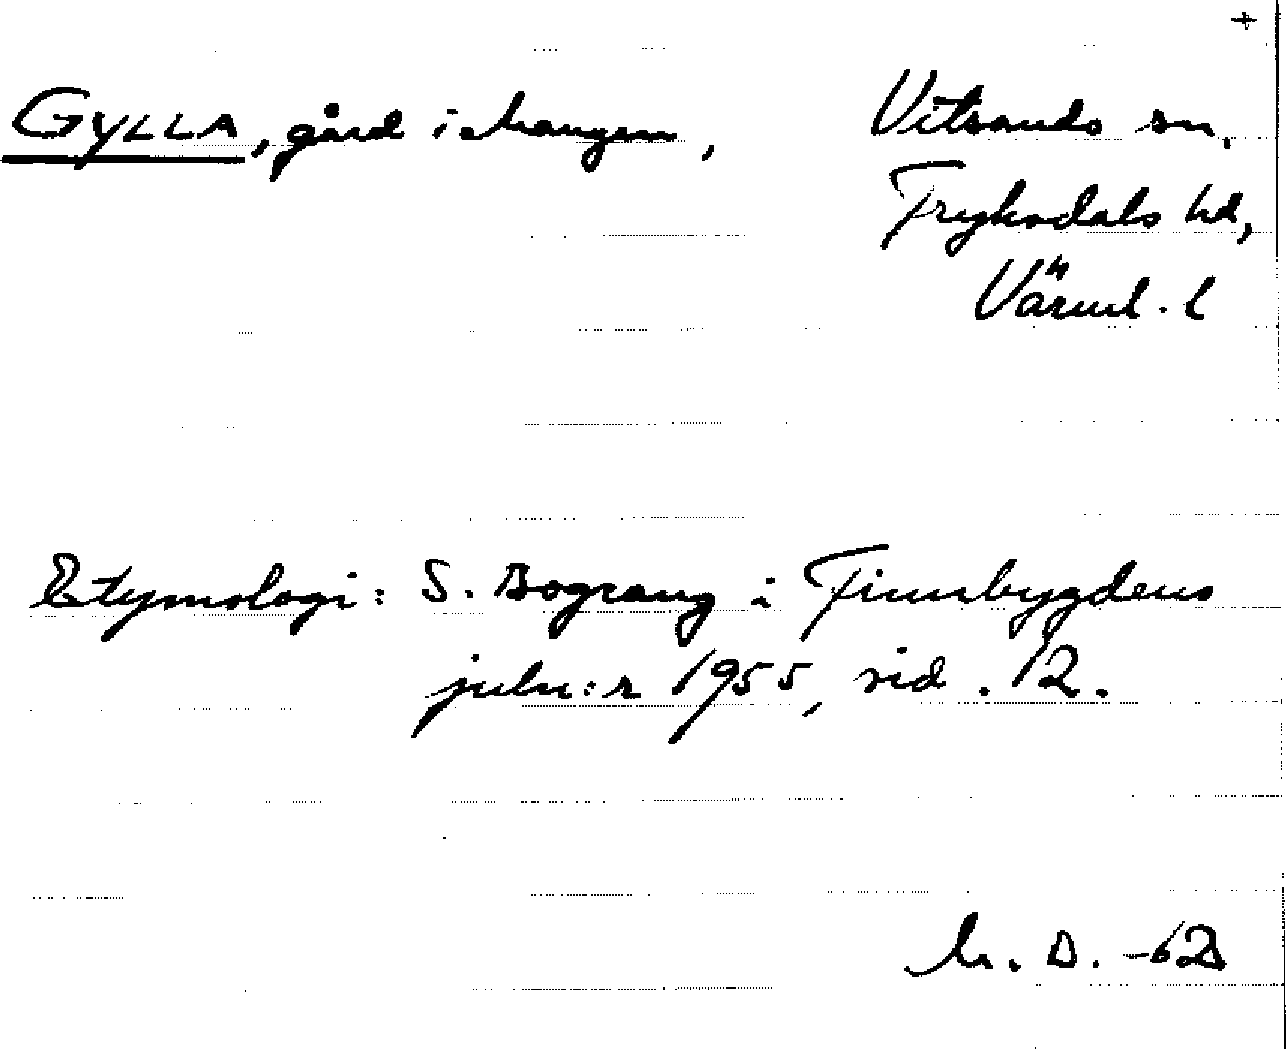 +
GYLLA, gård i Mangen, Vitsands sn,
Fryksdals hd,
Värml. l
Etymologi: S. Bograng i Finnbygdens
julnr:r 1955, sid. 12.
M. D. -62